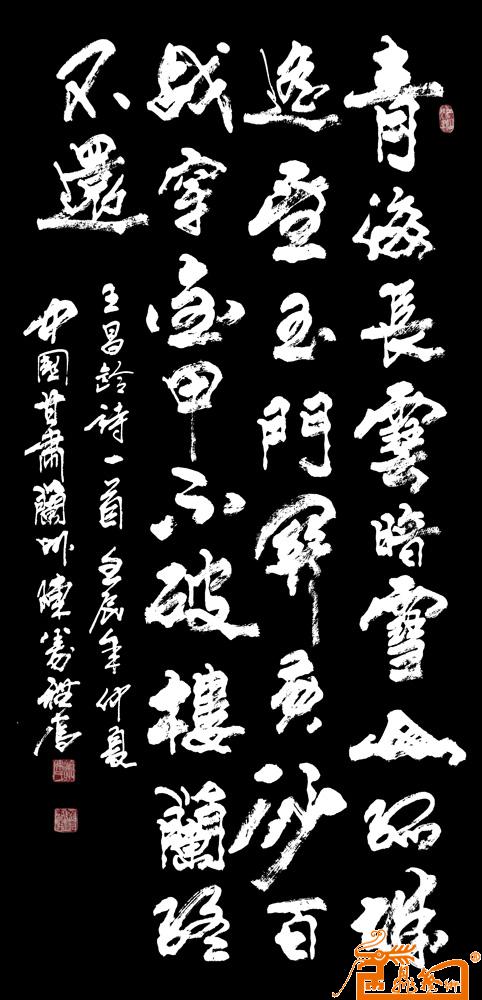 青海長雲暗雪山孤城
遙望玉門關黃沙百
戰穿金甲不破樓蘭終
不還
王昌齡詩一首壬辰年仲夏
中國甘肅蘭州陳